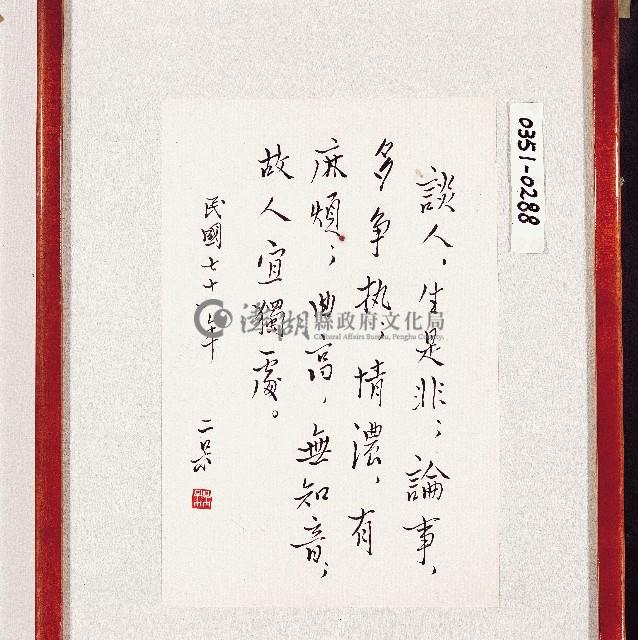 談人,生是非;論事,
多争执;情濃,有
麻煩;曲高,無知音;
故人宜獨處。
民國七十年 二呆
0351-0288
澎湖縣政府文化局
Cultural Affairs Bureau, Penghu County.